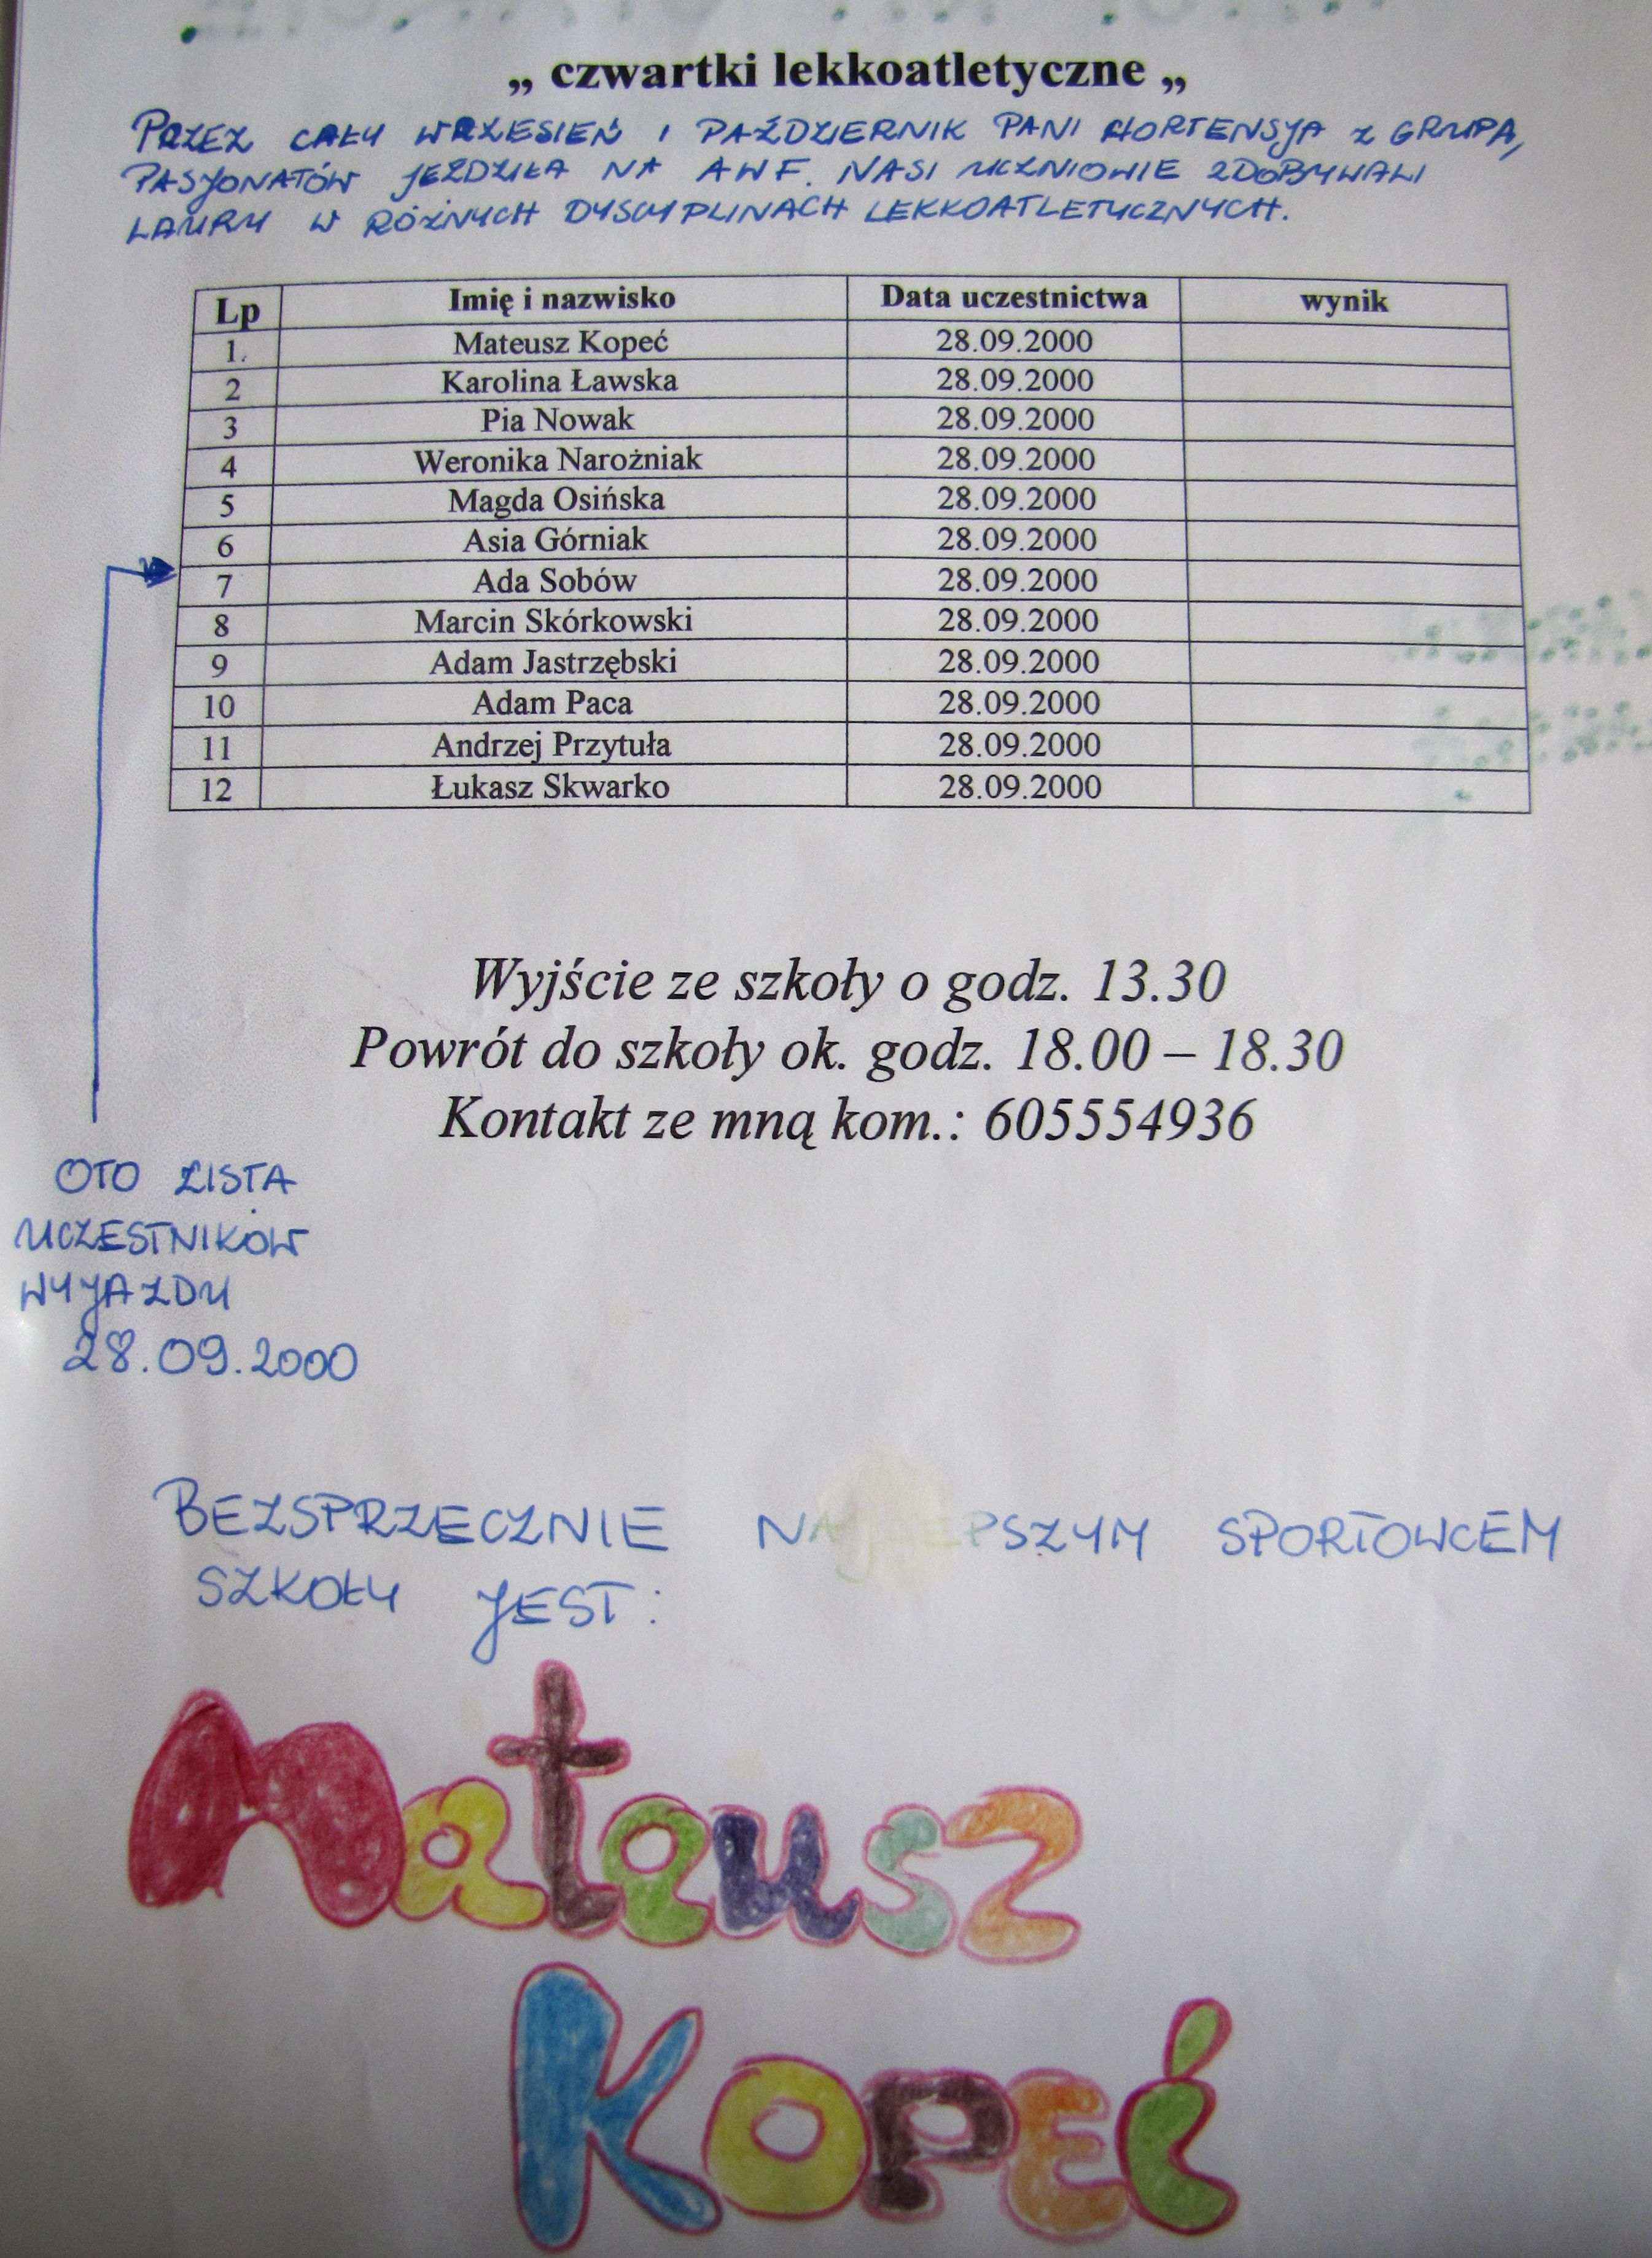 „ czwartki lekkoatletyczne „
PRZEZ CAŁY WRZESIEŃ I PAŹDZIERNIK PANI HORTENSJA Z GRUPĄ
PASJONATÓW JEŹDZIŁA NA AWF. NASI UCZNIOWIE ZDOBYWALI
LAURY W RÓŻNYCH DYSCYPLINACH LEKKOATLETYCZNYCH.
Lp Imię i nazwisko Data uczestnictwa wynik
1. Mateusz Kopeć 28.09.2000
2 Karolina Ławska 28.09.2000
3 Pia Nowak 28.09.2000
4 Weronika Narożniak 28.09.2000
5 Magda Osińska 28.09.2000
6 Asia Górniak 28.09.2000
7 Ada Sobów 28.09.2000
8 Marcin Skórkowski 28.09.2000
9 Adam Jastrzębski 28.09.2000
10 Adam Paca 28.09.2000
11 Andrzej Przytuła 28.09.2000
12 Łukasz Skwarko 28.09.2000
Wyjście ze szkoły o godz. 13.30
Powrót do szkoły ok. godz. 18.00 – 18.30
Kontakt ze mną kom.: 605554936
OTO LISTA
UCZESTNIKÓW
WYJAZDU
28.09.2000
BEZSPRZECZNIE NAJLEPSZYM SPORTOWCEM
SZKOŁY JEST:
Mateusz
Kopeć